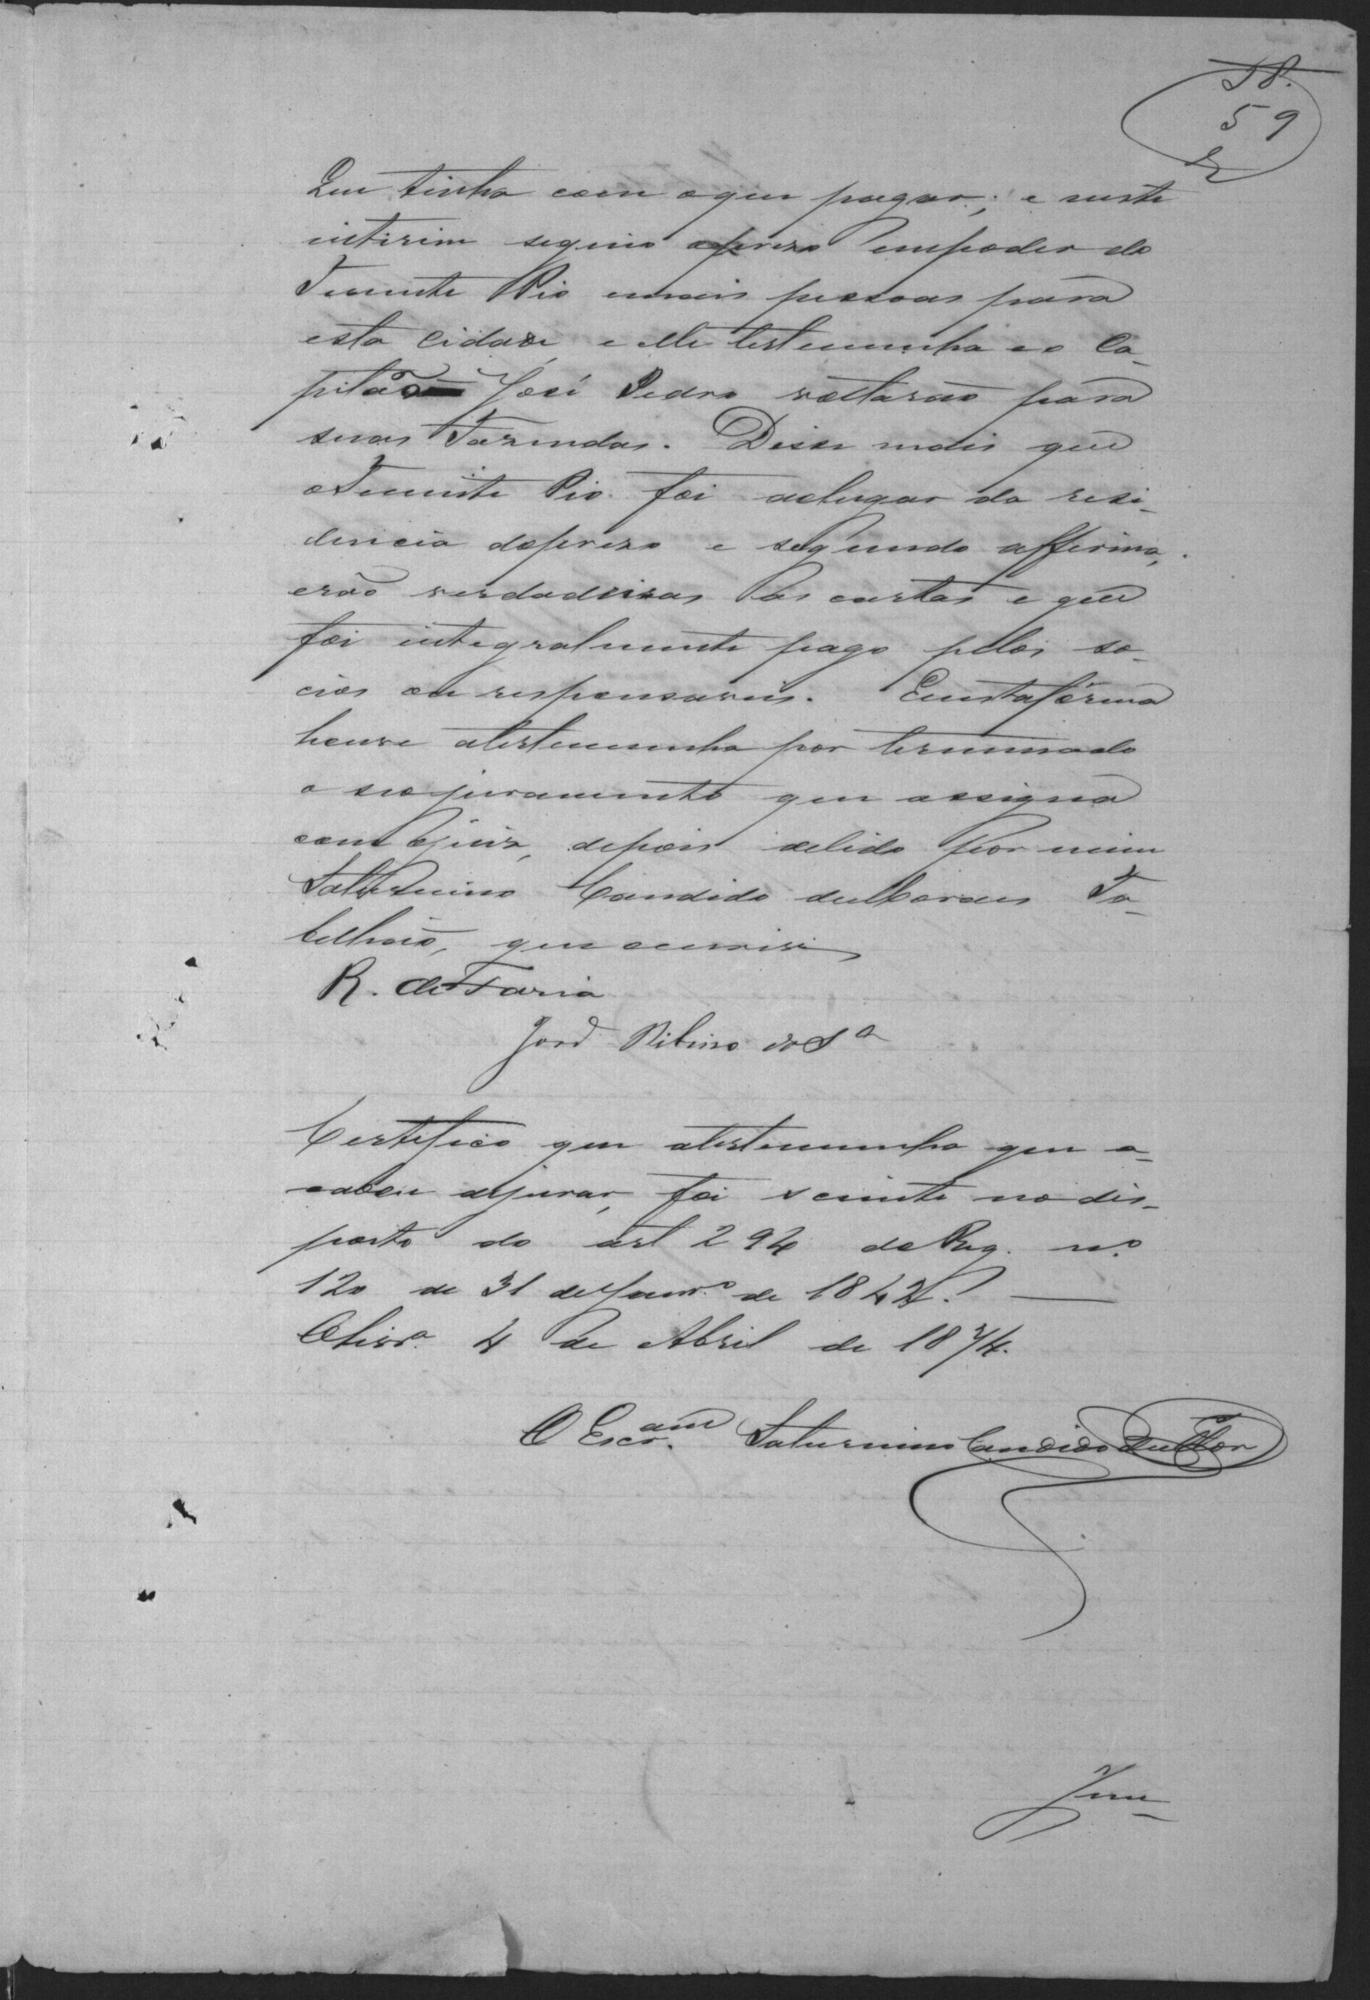 58.
59
Que tinha com oque pagar; e neste
interim seguio opreso empoder do
Tenente Pio emais pessoas para
esta Cidade, e elle testemunha eo Ca-
pitão José Pedro voltarão para
suas Fazendas. Disse mais que
oTenente Pio foi aolugar da resi-
dencia dopreso e segundo affirma,
erão verdadeiras as cartas e que
foi integralmente pago pelos so-
cios ou responsaveis. Emestaforma
houve atestemunha por terminado
o seo juramento que assigna
com ojuiz, depois delido por mim
Saturnino Candido deMoraes Ta-
bellião, que oescrivi
R. de Faria
José Ribeiro da Sª
Certifico que atestemunha que a-
cabou dejurar, foi sciente no dis-
posto do art 294 do Reg. nº
120 de 31 deJanrº de 1842. —
Olivrª 4 de Abril de 1874.
O Escram. Saturnino Candido deMor
Jun-